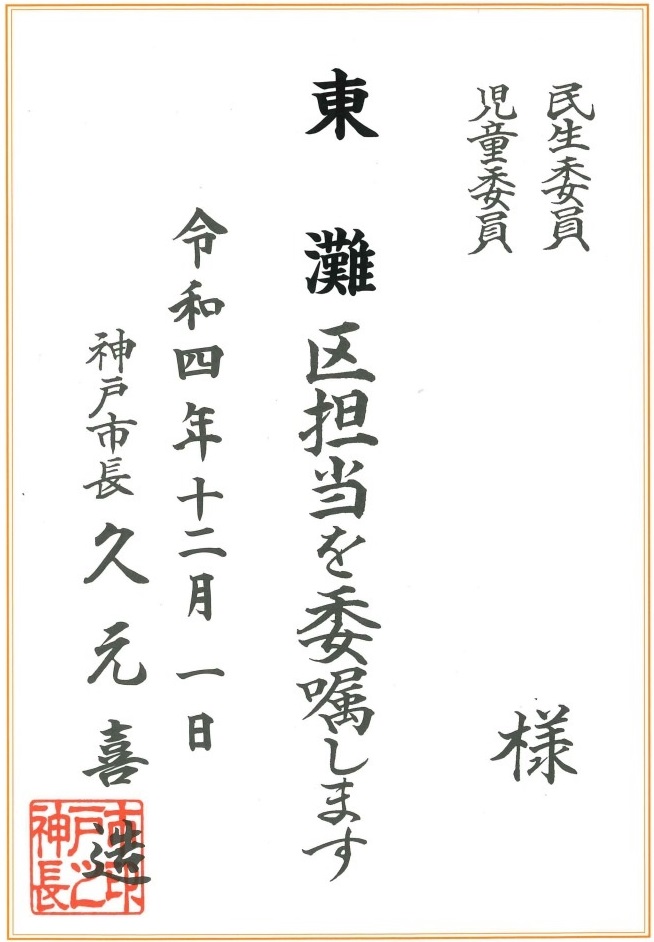 民生委員
児童委員
様
東灘区担当を委嘱します
令和四年十二月一日
神戸市長 久元喜造